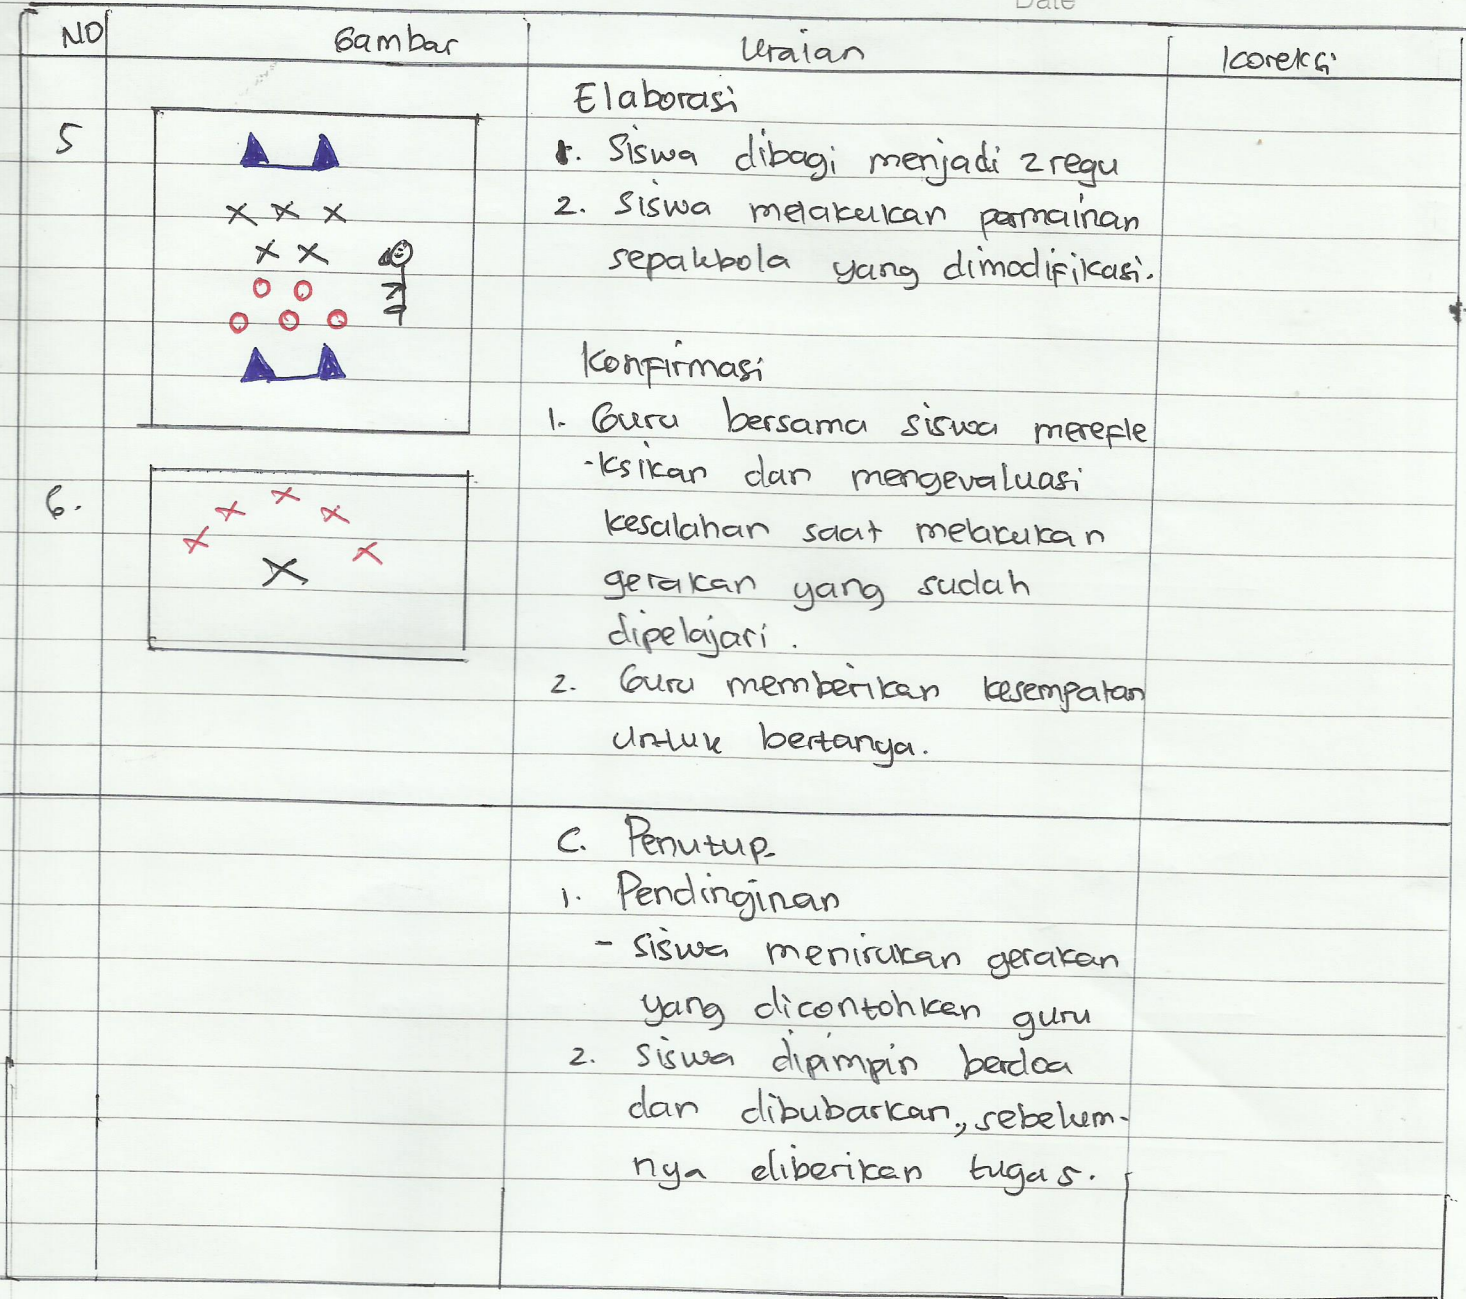 Date
No Gambar Uraian Koreksi
Elaborasi
5
1. Siswa dibagi menjadi 2 regu
2. Siswa melakukan permainan
sepakbola yang dimodifikasi.
Konfirmasi
1. Guru bersama siswa merefle
-ksikan dan mengevaluasi
6.
kesalahan saat melakukan
gerakan yang sudah
dipelajari.
2. Guru memberikan kesempatan
untuk bertanya.
C. Penutup
1. Pendinginan
- siswa menirukan gerakan
yang dicontohkan guru
2. siswa dipimpin berdoa
dan dibubarkan., sebelum-
nya diberikan tugas.